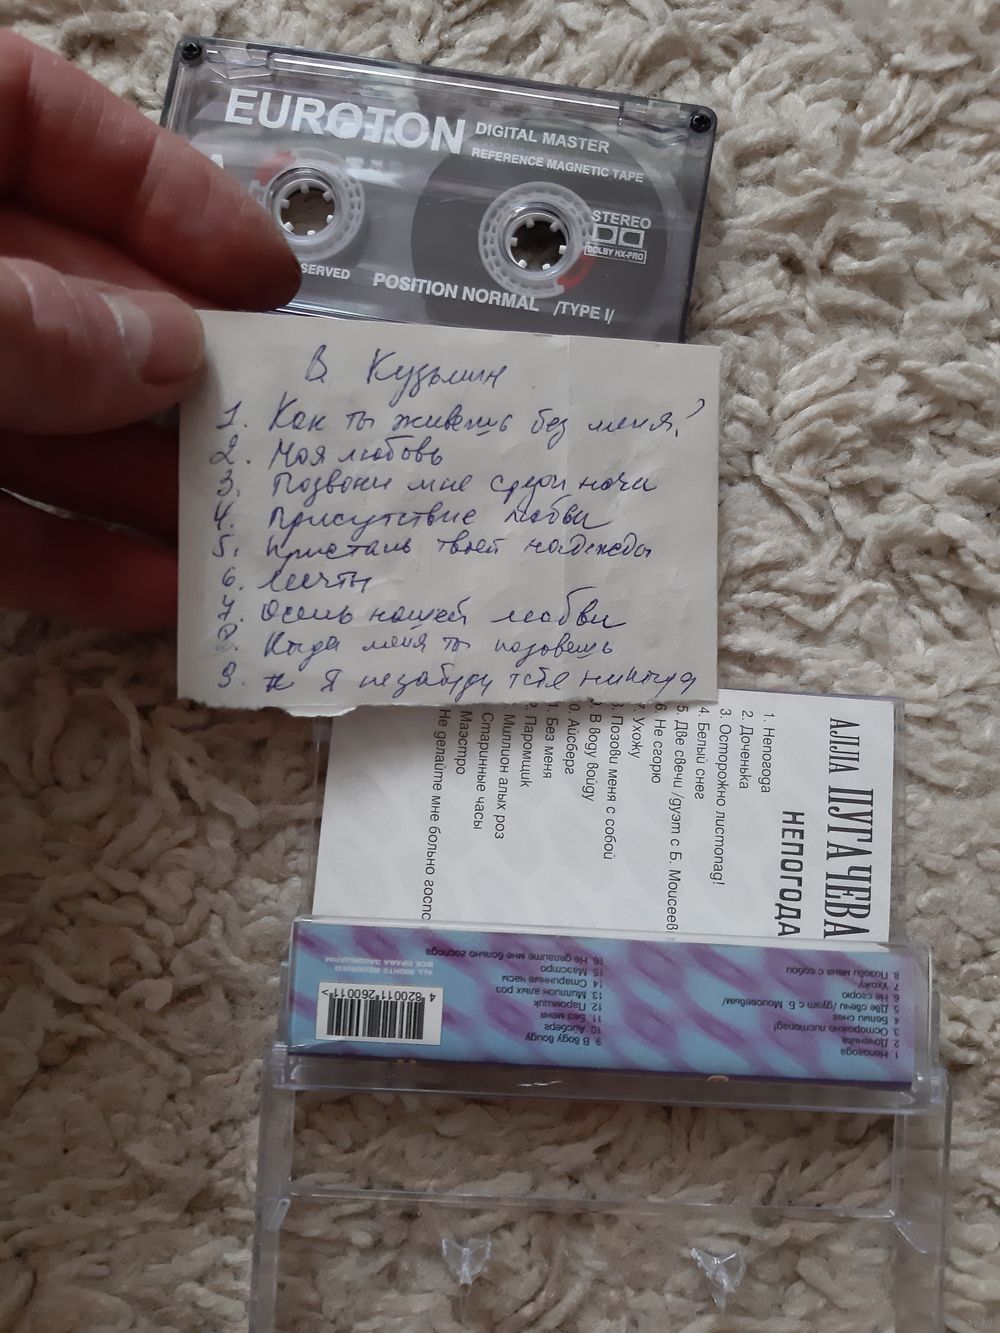 EUROTON
DIGITAL MASTER
REFERENCE MAGNETIC TAPE
STEREO
DOLBY HX-PRO
SERVED
POSITION NORMAL /TYPE I/
В. Кузьмин
1. Как ты живешь без меня?
2. Моя любовь
3. Позвони мне среди ночи
4. Присутствие любви
5. Пристань твоей надежды
6. Мечты
7. Осень нашей любви
8. Когда меня ты позовешь
9. Я не забуду тебя никогда
АЛЛА ПУГАЧЕВА
НЕПОГОДА
1. Непогода
2. Доченька
3. Осторожно листопад!
4. Белый снег
5. Две свечи /дуэт с Б. Моисеев
6. Не сгорю
7. Ухожу
8. Позови меня с собой
9. В воду войду
0. Айсберг
1. Без меня
2. Паромщик
Миллион алых роз
Старинные часы
Маэстро
Не делайте мне больно госпо
1. Непогода
2. Доченька
3. Осторожно листопад!
4. Белый снег
5. Две свечи /дуэт с Б. Моисеевым/
6. Не сгорю
7. Ухожу
8. Позови меня с собой
9. В воду войду
10. Айсберг
11. Без меня
12. Паромщик
13. Миллион алых роз
14. Старинные часы
15. Маэстро
16. Не делайте мне больно господа
ALL RIGHTS RESERVED
ВСЕ ПРАВА ЗАЩИЩЕНЫ
4 820011 260011 >